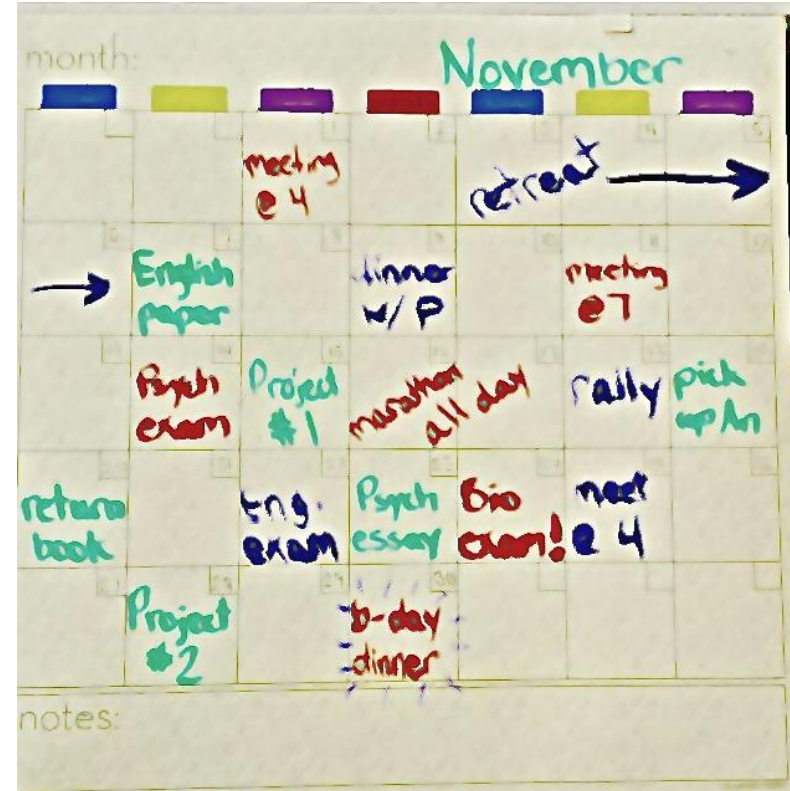 month:
November
meeting
@ 4
retreat
English
paper
dinner
w/ P
meeting
@ 7
Psych
exam
Project
#1
marathon
all day
rally
pick
up An
return
book
Eng.
exam
Psych
essay
Bio
exam!
meet
@ 4
Project
#2
b-day
dinner
notes: